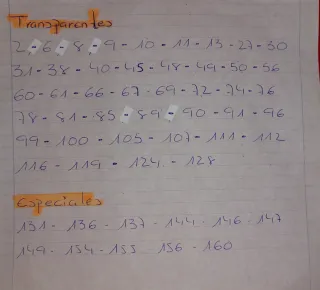 Transparentes
2 - 6 - 8 - 9 - 10 - 11 - 13 - 27 - 30
31 - 38 - 40 - 45 - 48 - 49 - 50 - 56
60 - 61 - 66 - 67 - 69 - 72 - 74 - 76
78 - 81 - 85 - 89 - 90 - 91 - 96
99 - 100 - 105 - 107 - 111 - 112
116 - 119 - 124 - 128
Especiales
131 - 136 - 137 - 144 - 146 - 147
149 - 154 - 155 156 - 160